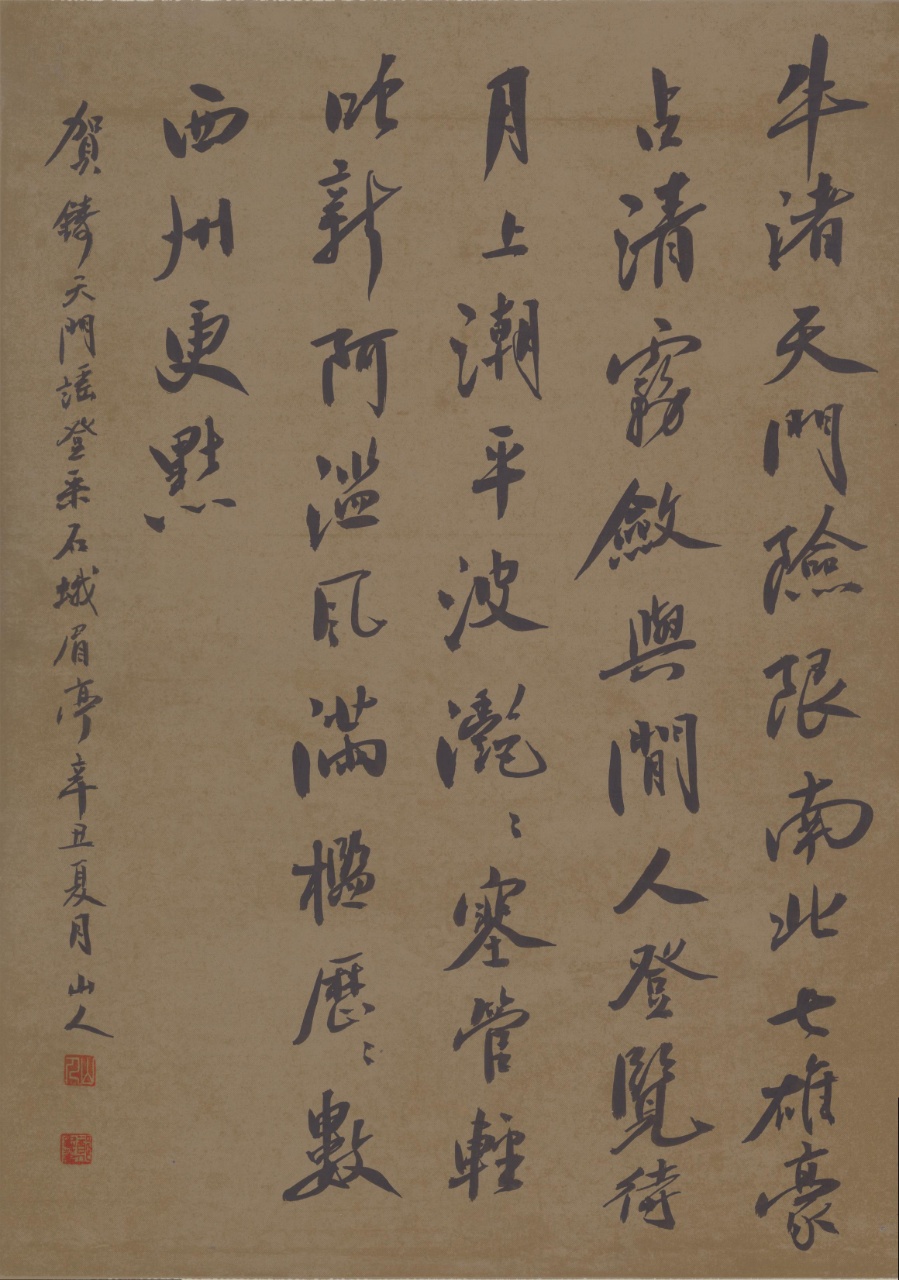 牛渚天門險限南北七雄豪
占清霧斂與閒人登覽待
月上潮平波灧〻塞管輕
吹新阿濫風滿檻歷〻數
西州更點
賀鑄天門謠登采石蛾眉亭辛丑夏月山人